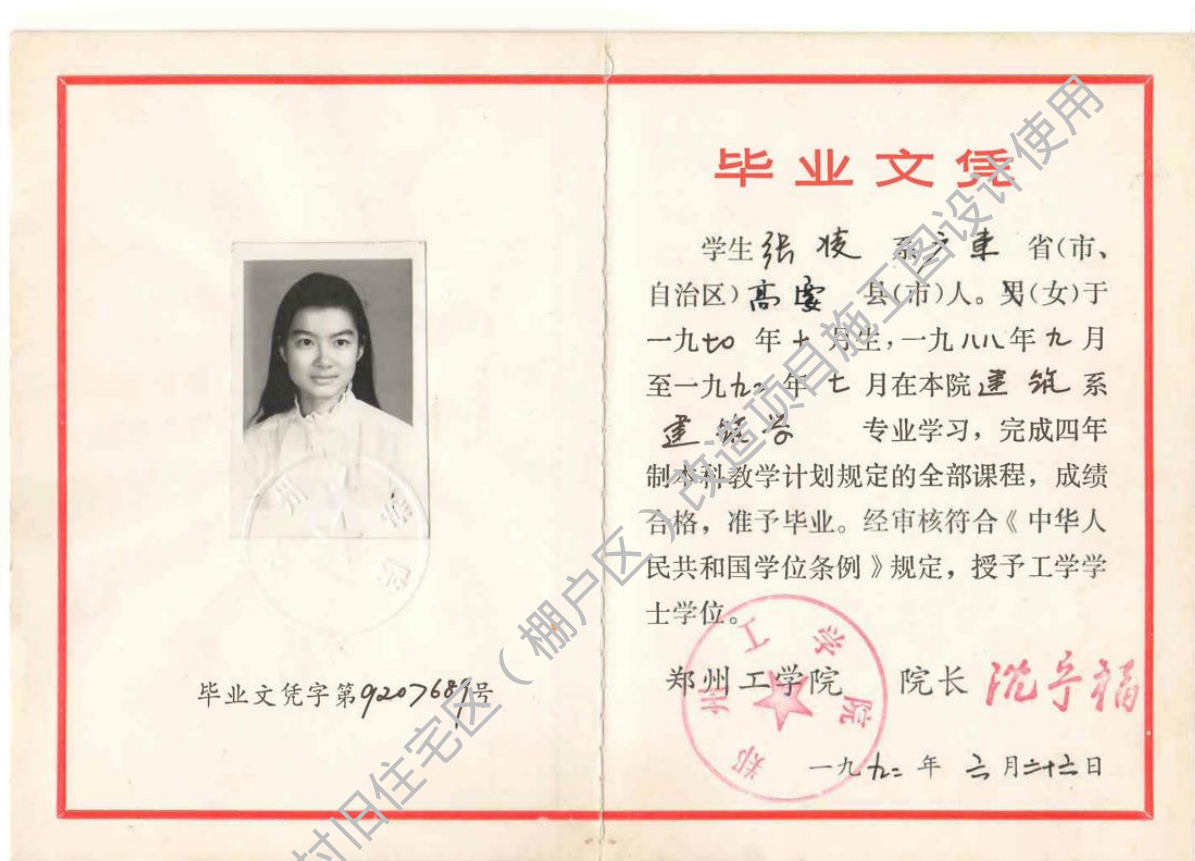 毕业文凭
学生张 系广东 省(市、
自治区)高要 县(市)人。男(女)于
一九七〇年十月生,一九八八年九月
至一九九二年七月在本院建筑系
建筑学 专业学习,完成四年
制本科教学计划规定的全部课程,成绩
合格,准予毕业。经审核符合《中华人
民共和国学位条例》规定,授予工学学
士学位。
郑州工学院 院长 沈宁福
一九九二年 六月二十六日
毕业文凭字第92076891号
郑州工学院
村旧住宅区(棚户区)改造项目施工图设计使用